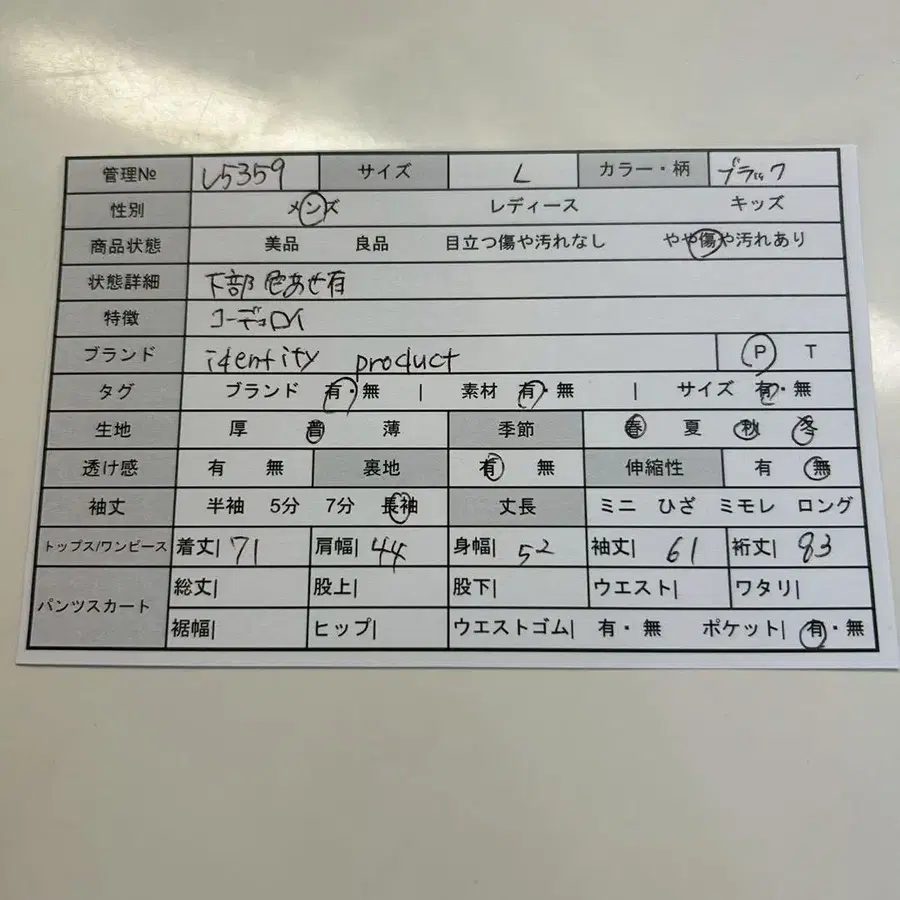 管理№ L5359 サイズ L カラー・柄 ブラック
性別 メンズ レディース キッズ
商品状態 美品 良品 目立つ傷や汚れなし やや傷や汚れあり
状態詳細 下部 色あせ有
特徴 コーデュロイ
ブランド identity product P T
タグ ブランド 有・無 | 素材 有・無 | サイズ 有・無
生地 厚 普 薄 季節 春 夏 秋 冬
透け感 有 無 裏地 有 無 伸縮性 有 無
袖丈 半袖 5分 7分 長袖 丈長 ミニ ひざ ミモレ ロング
トップス/ワンピース 着丈| 71 肩幅| 44 身幅| 52 袖丈| 61 裄丈| 83
パンツスカート 総丈| 股上| 股下| ウエスト| ワタリ|
裾幅| ヒップ| ウエストゴム| 有・無 ポケット| 有・無